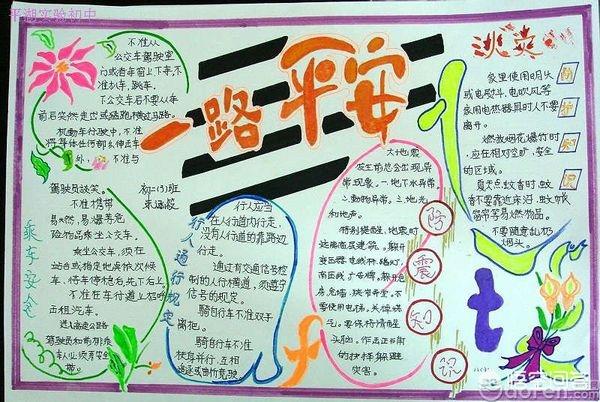 平湖实验初中
一路平安
不准从
公交车驾驶室
门或者车窗上下车,不
准扒车、跳车。
下公交车后不要从车
前后突然走出或猛跑横过马路。
机动车行驶中,不准
将身体任何部分伸出车
外,不准与
驾驶员谈笑。
不准携带
易燃、易爆等危
险物品乘坐公交车。
乘坐公交车,须在
站台或指定地点依次候
车,待车停稳后,先下后上
不准在车行道上招呼
出租汽车。
进入高速公路
驾驶员和前排乘
车人必须系安全
带。
乘车安全
初二(3)班
行人通行规定
行人应当
在人行道内行走,
没有人行道的靠路边
行走。
通过有交通信号控
制的人行横道,须遵守
信号的规定。
骑自行车不准双手
离把。
骑自行车不准
扶身并行、互相
追逐或曲折竞驶。
大地震
发生前总会出现异
常现象。一.地下水异常、
二.动物异常、三.地光
和地声。
特别提醒,地震时
远离高层建筑,躲开
变压器、电线杆、路灯、
广告牌,躲开
危房、危墙、狭窄弄堂,不
要使用电梯,关掉煤
气,要保持清醒
头脑,作出正确
的抉择躲避
灾害。
防震知识
火灾
防护知识
家里使用明火
或电熨斗、电吹风等
家用电热器具时人不要
离开。
燃放烟花爆竹时
,应在相对空旷,安全
的区域。
夏天点蚊香时,蚊
香不要靠近床沿、蚊帐
窗帘等易燃物品。
不要随意乱扔
烟头。